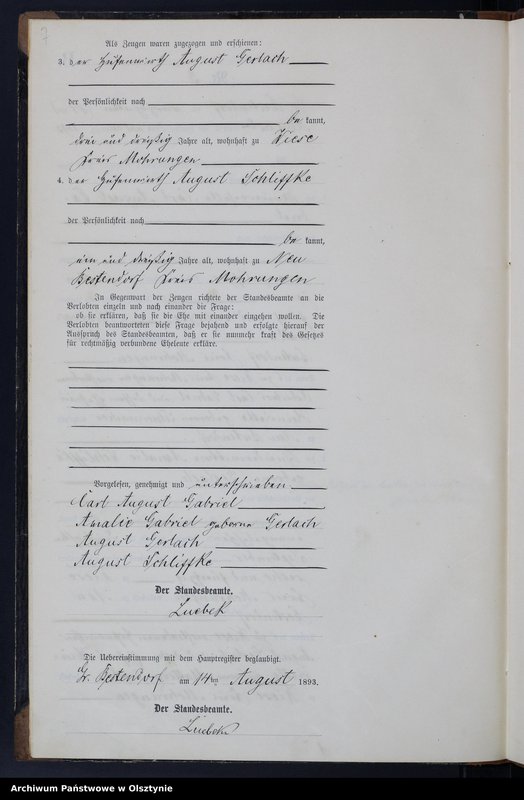 7
Als Zeugen waren zugezogen und erschienen:
3. der Hufenwirth August Gerlach
der Persönlichkeit nach
be kannt,
drei und dreißig Jahre alt, wohnhaft zu Wiese
Kreis Mohrungen
4. der Hufenwirth August Schliffke
der Persönlichkeit nach
be kannt,
ein und dreißig Jahre alt, wohnhaft zu Neu
Bestendorf Kreis Mohrungen
In Gegenwart der Zeugen richtete der Standesbeamte an die
Verlobten einzeln und nach einander die Frage:
ob sie erklären, daß sie die Ehe mit einander eingehen wollen. Die
Verlobten beantworteten diese Frage bejahend und erfolgte hierauf der
Ausspruch des Standesbeamten, daß er sie nunmehr kraft des Gesetzes
für rechtmäßig verbundene Eheleute erkläre.
Vorgelesen, genehmigt und unterschrieben
Carl August Gabriel
Amalie Gabriel geborne Gerlach
August Gerlach
August Schliffke
Der Standesbeamte.
Luebek
Die Uebereinstimmung mit dem Hauptregister beglaubigt.
Gr. Bestendorf am 14ten August 1893.
Der Standesbeamte.
Luebek
Archiwum Państwowe w Olsztynie